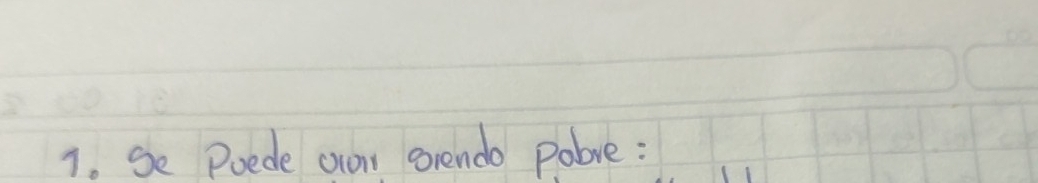 1. Se Puede siendo pobre: